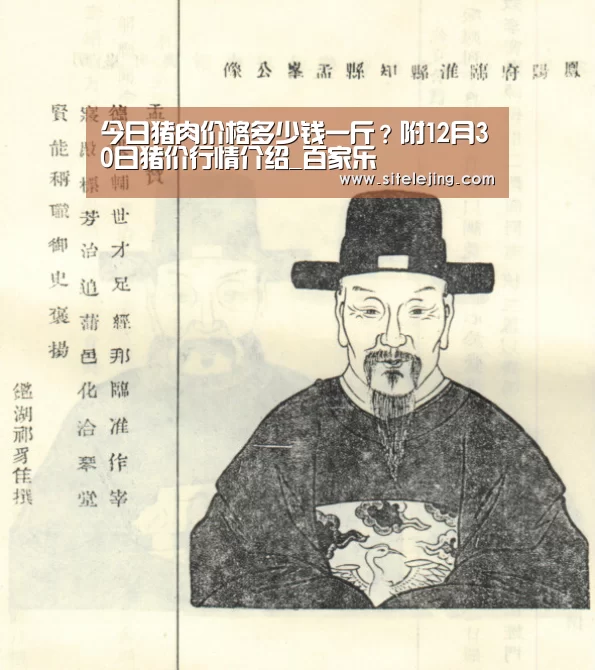 今日猪肉价格多少钱一斤？附12月3
0日猪价行情介绍_百家乐
www.sitelejing.com
鳳陽府臨淮縣知縣孟峯公像
孟
德輔世才足經邦臨淮作宰
芳治追蒲邑化洽琴堂
賢能稱職御史褒揚
鑑湖祁豸佳撰